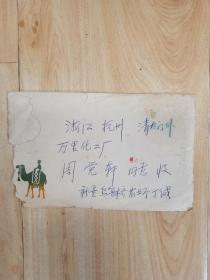 浙江 杭州 清泰门外
万里化工厂
周 党 部 同志 收
新疆乌鲁木齐